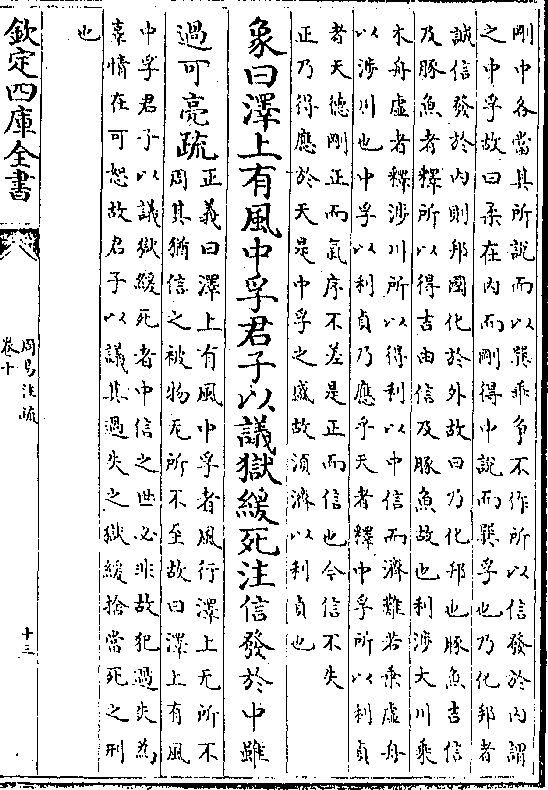 剛中各當其所說而以巽乖爭不作所以信發於內謂
之中孚故曰柔在內而剛得中說而巽孚也乃化邦者
誠信發於內則邦國化於外故曰乃化邦也豚魚吉信
及豚魚者釋所以得吉由信及豚魚故也利涉大川乘
木舟虛者釋涉川所以得利以中信而濟難若乘虛舟
以涉川也中孚以利貞乃應乎天者釋中孚所以利貞
者天德剛正而氣序不差是正而信也今信不失
正乃得應於天是中孚之盛故湏濟以利貞也
象曰澤上有風中孚君子以議獄緩死注信發於中雖
過可亮疏
正義曰澤上有風中孚者風行澤上无所不
周其猶信之被物无所不至故曰澤上有風
中孚君子以議獄緩死者中信之世必非故犯過失為
辜情在可恕故君子以議其過失之獄緩捨當死之刑
也
欽定四庫全書
周易注疏
卷十
十三